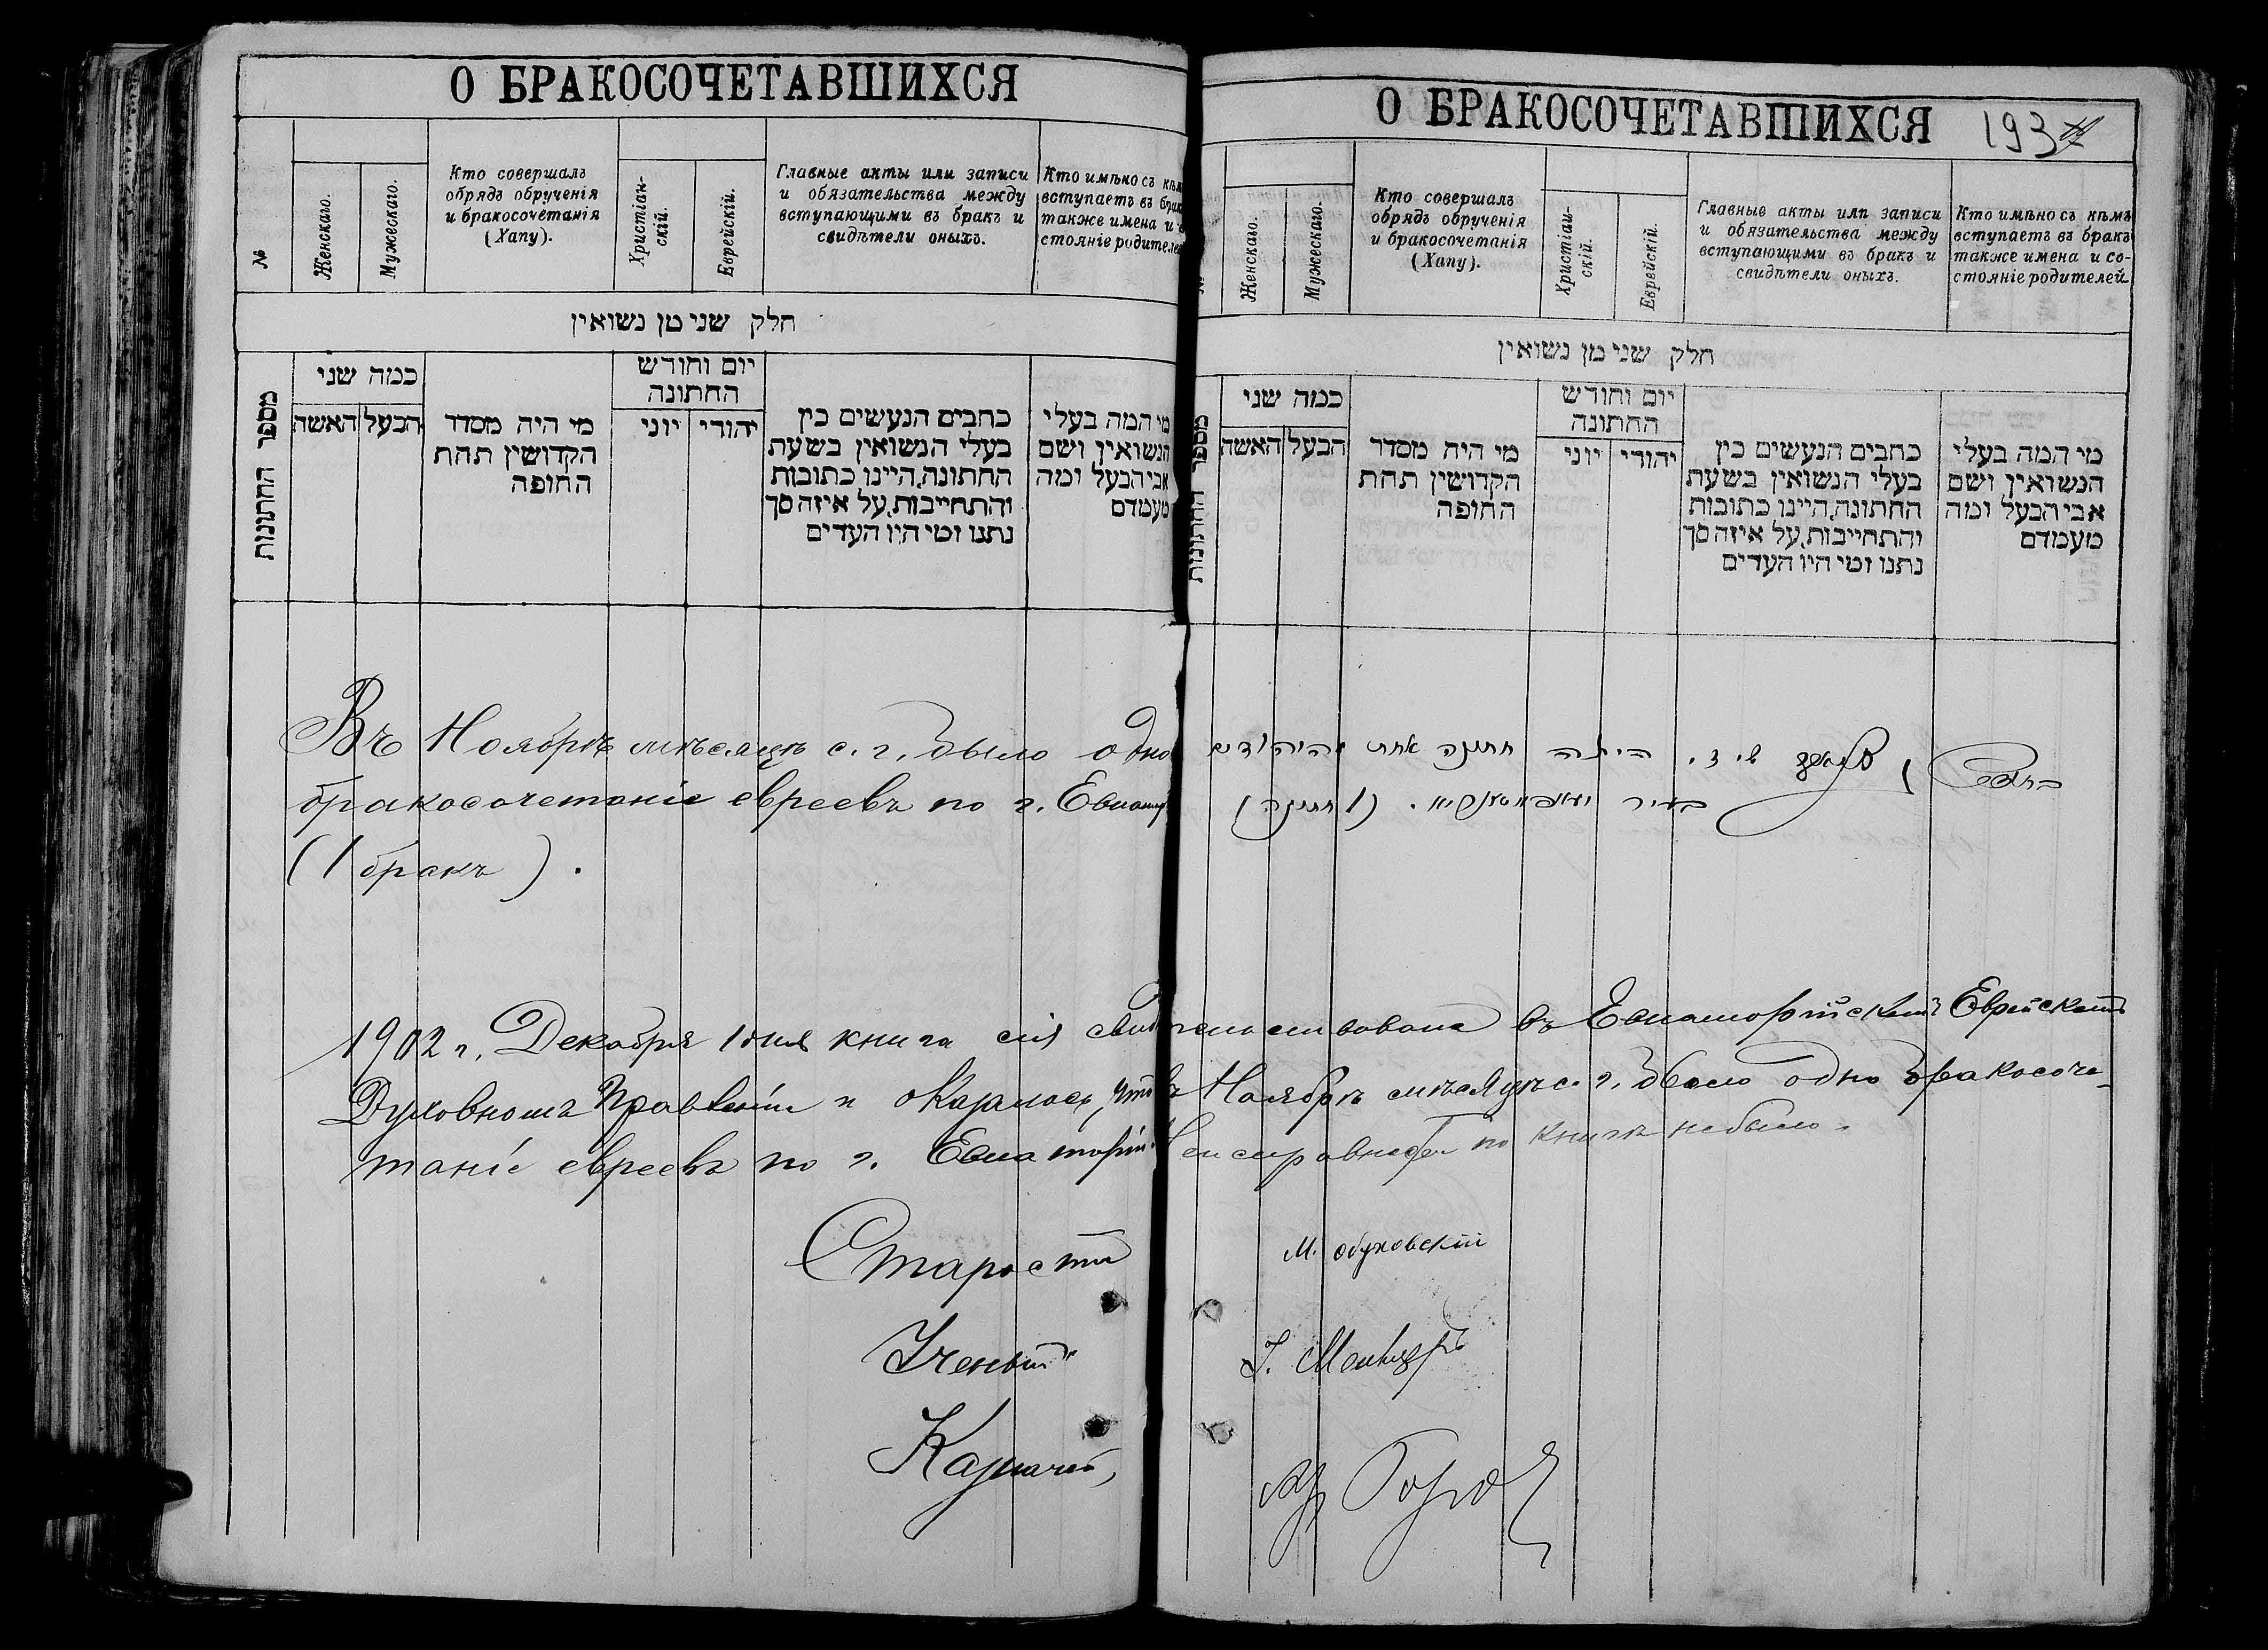 О БРАКОСОЧЕТАВШИХСЯ
№
Женскаго.
Мужескаго.
Кто совершалъ
обрядъ обрученія
и бракосочетанія
(Хапу).
Христіан-
скій.
Еврейскій.
Главные акты или записи
и обязательства между
вступающими въ бракъ и
свидѣтели оныхъ.
Кто имѣно съ
вступаетъ въ
также имена и
стояніе
חלק שני מן נשואין
מספר החתונות
כמה שני
האשה
הבעל
מי היה מסדר
הקדושין תחת
החופה
יום וחודש
החתונה
יוני
יהודי
כתבים הנעשים בין
בעלי הנשואין בשעת
החתונה, היינו כתובות
והתחייבות, על איזה סך
נתנו ומי היו העדים
מי המה בעלי
הנשואין ושם
אבי הבעל ומה
מעמדם
Въ Ноябрѣ мѣсяцѣ с. г. было одно
бракосочетаніе евреевъ по г.
(1 бракъ).
О БРАКОСОЧЕТАВШИХСЯ 193
Женскаго.
Мужескаго.
Кто совершалъ
обрядъ обрученія
и бракосочетанія
(Хапу).
Христіан-
скій.
Еврейскій.
Главные акты или записи
и обязательства между
вступающими въ бракъ и
свидѣтели оныхъ.
Кто имѣно съ кѣмъ
вступаетъ въ бракъ
также имена и со-
стояніе родителей
חלק שני מן נשואין
מספר החתונות
כמה שני
האשה
הבעל
מי היה מסדר
הקדושין תחת
החופה
יום וחודש
החתונה
יוני
יהודי
כתבים הנעשים בין
בעלי הנשואין בשעת
החתונה, היינו כתובות
והתחייבות, על איזה סך
נתנו ומי היו העדים
מי המה בעלי
הנשואין ושם
אבי הבעל ומה
מעמדם
היתה חתונה אחת
בעיר (1 חתונה)
1902 г. Декабря 1 дня книга сія свидѣтельствована въ Евпаторійскомъ Еврейскомъ
Духовномъ Правленіи и оказалось, что въ Ноябрѣ мѣсяцѣ с. г. было одно бракосоче-
таніе евреевъ по г. Евпаторіи. Неисправностей по книгѣ небыло.
Староста М. Обуховскій
Ученый
Казначей